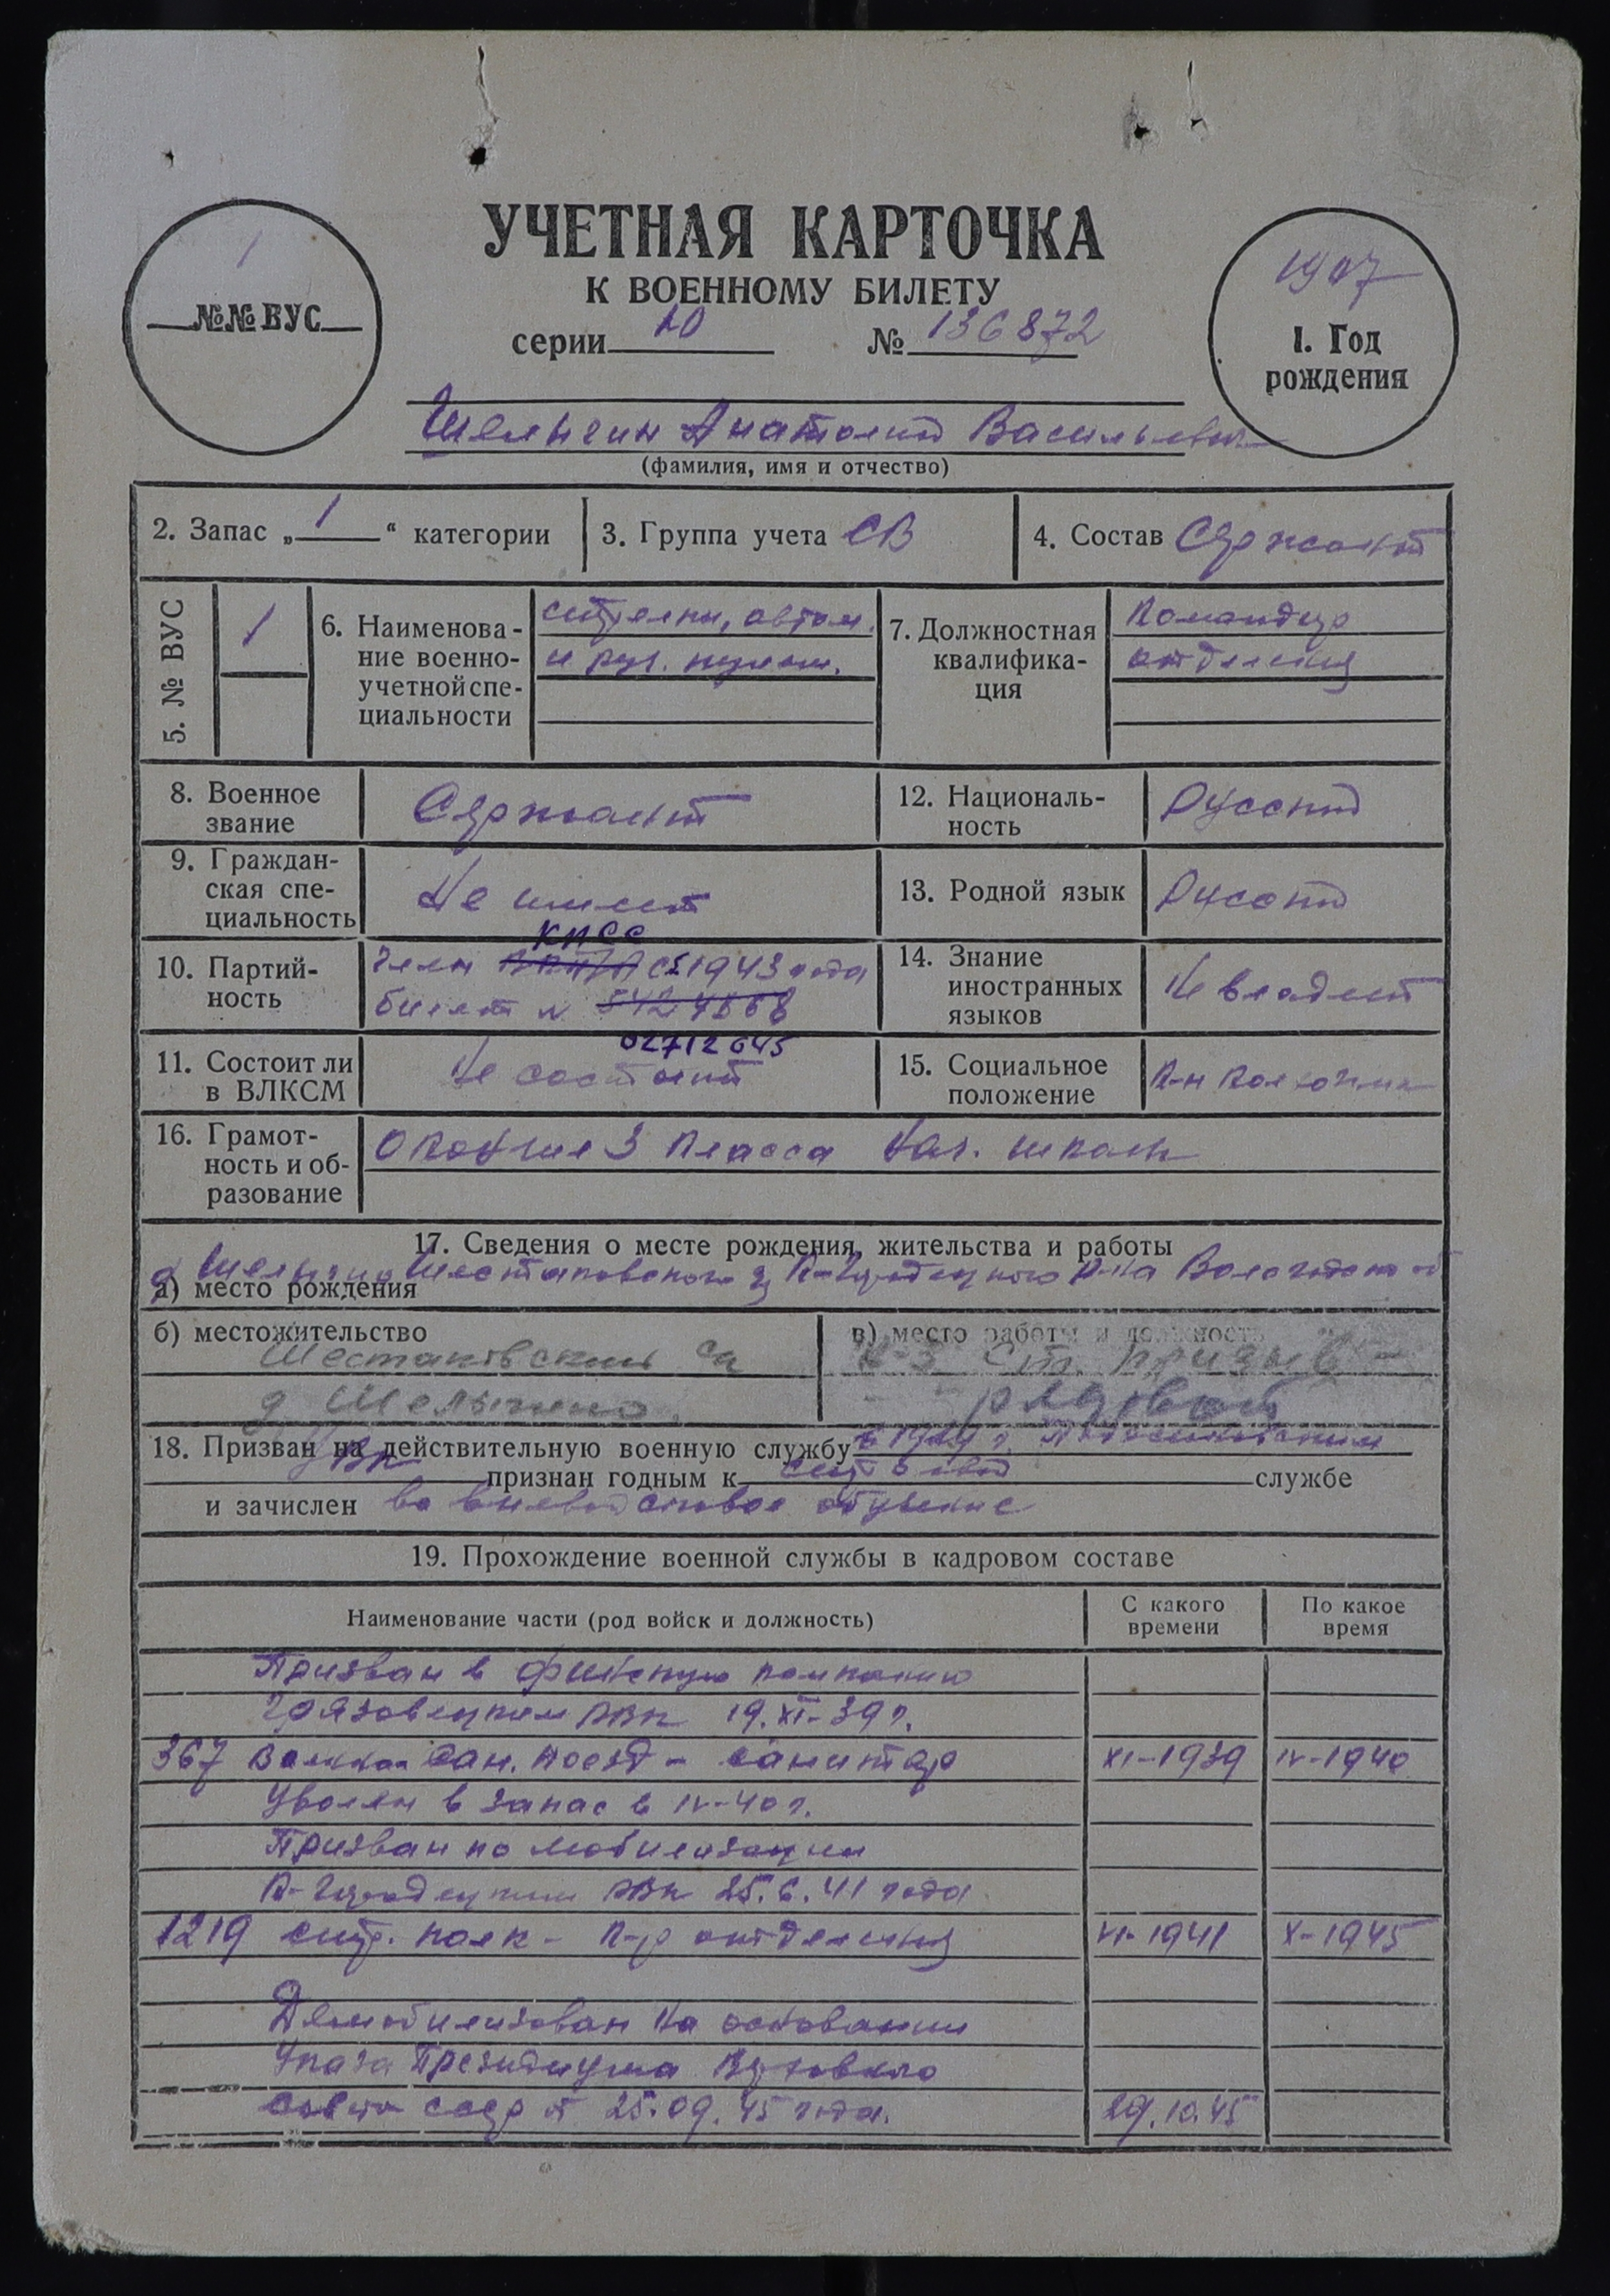 1
№№ ВУС
УЧЕТНАЯ КАРТОЧКА
К ВОЕННОМУ БИЛЕТУ
серии Ю № 136872
1907
1. Год
рождения
Шелыгин Анатолий Васильевич
(фамилия, имя и отчество)
2. Запас „ 1 “ категории
3. Группа учета СВ
4. Состав Сержант
5. № ВУС
1
6. Наименова-
ние военно-
учетной спе-
циальности
стрелки, автом.
и руч. пулем.
7. Должностная
квалифика-
ция
Командир
отделения
8. Военное
звание
Сержант
12. Националь-
ность
Русский
9. Граждан-
ская спе-
циальность
Не имеет
13. Родной язык
Русский
10. Партий-
ность
КПСС
Член ВКП/б с 1943 года
билет № 5424568
02712645
14. Знание
иностранных
языков
Не владеет
11. Состоит ли
в ВЛКСМ
Не состоит
15. Социальное
положение
К-н колхозник
16. Грамот-
ность и об-
разование
Окончил 3 класса нач. школы
17. Сведения о месте рождения, жительства и работы
а) место рождения
д Шелыгино Шестаковского К-Городецкого р-на Вологодской об
б) местожительство
Шестаковский с/с
д Шелыгино
в) место работы и должность
к-з Ст. призыв -
рядовой
18. Призван на действительную военную службу в 1929 г.
РВК признан годным к строевой службе
и зачислен во вневойсковое обучение
19. Прохождение военной службы в кадровом составе
Наименование части (род войск и должность)
С какого
времени
По какое
время
Призван в финскую компанию
Грязовецким РВК 19.XI-39 г.
367 Военной Сан. поезд - санитар XI-1939 IV-1940
Уволен в запас в IV-40 г.
Призван по мобилизации
К-Городецким РВК 25.6.41 года
1219 стр. полк - к-р отделения VI-1941 X-1945
Демобилизован на основании
Указа Президиума Верховного
Совета СССР от 25.09.45 года. 29.10.45